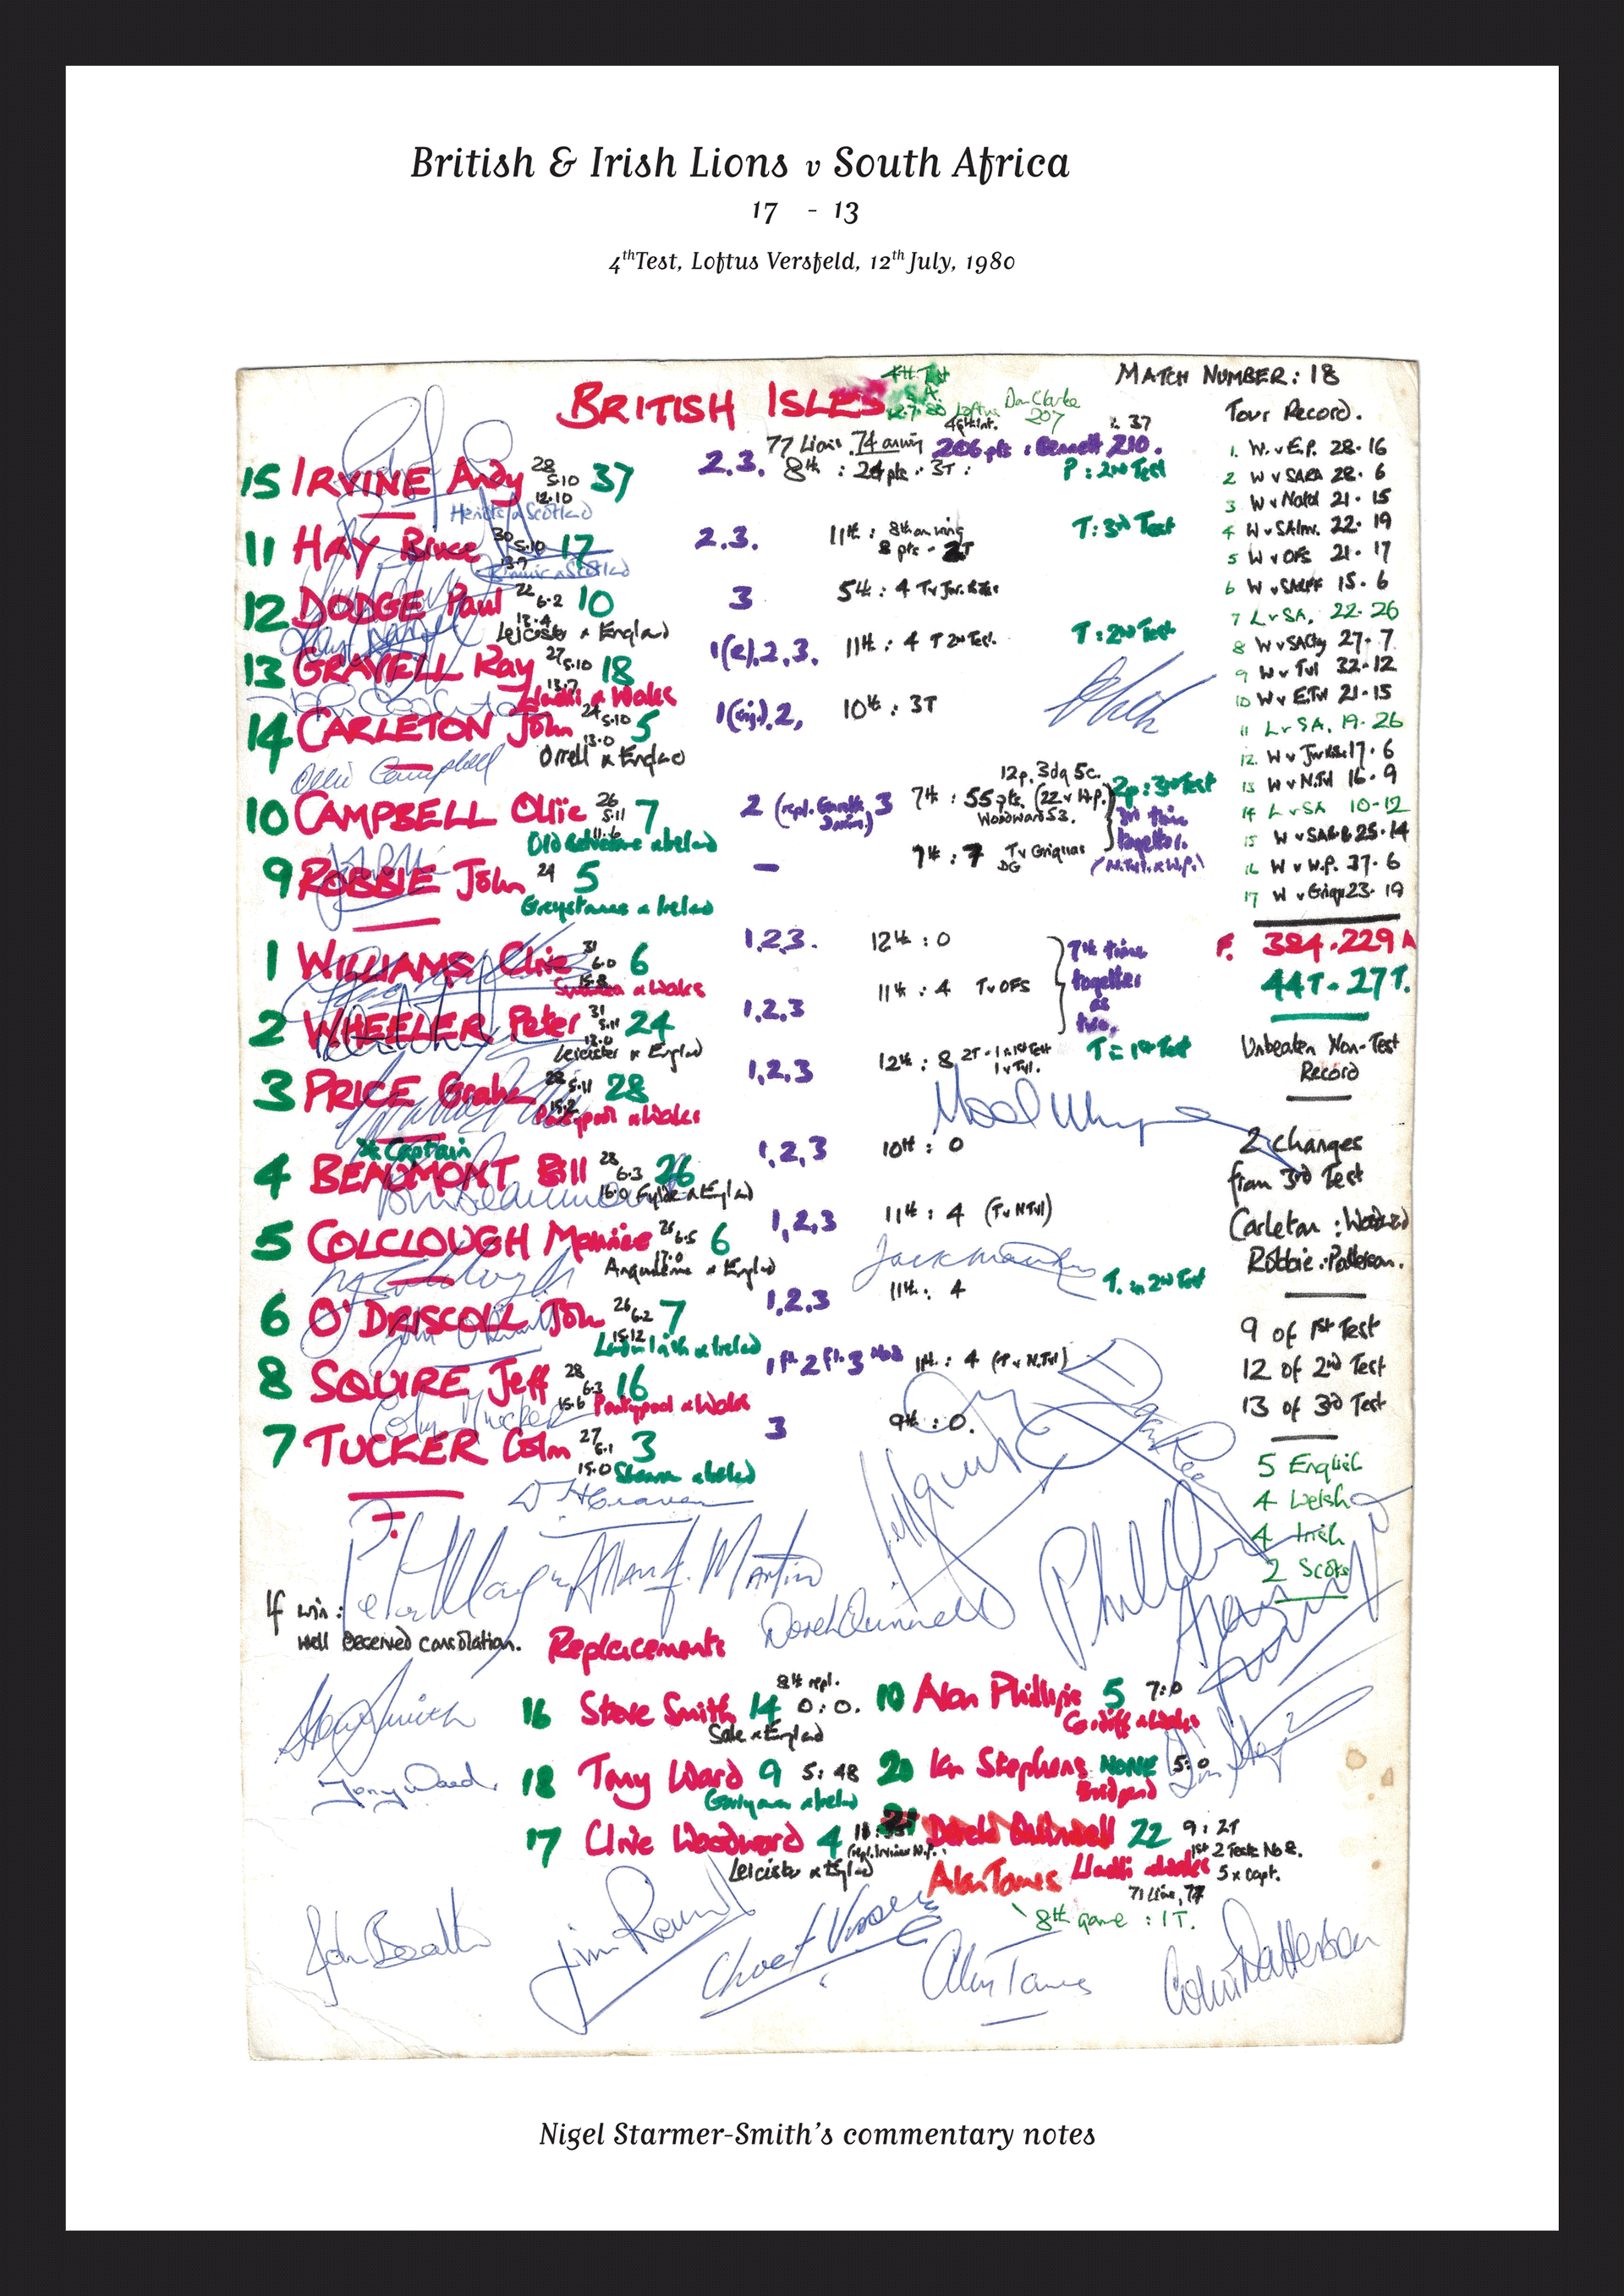 British & Irish Lions v South Africa
17 - 13
4th Test, Loftus Versfeld, 12th July, 1980
MATCH NUMBER: 18
BRITISH ISLES
4th Test
S.A.
12.7.80 Loftus
Don Clarke
207
77 Lions. 74 206 pts : Bennett 210.
15 IRVINE Andy 28 5.10 12.10 37 2.3. 8th : 24 pts. 3T : P : 2nd Test
Heriots & Scotland
11 HAY Bruce 30 5.10 13.7 17 2.3. 11th : 8th on wing 8 pts - 2T T: 3rd Test
12 DODGE Paul 22 6.2 13.4 10 3 5th : 4
Leicester & England
13 GRAVELL Ray 27 5.10 13.7 18 1(R).2.3. 11th : 4 T 2nd Test. T : 2nd Test
Llanelli & Wales
14 CARLETON John 24 5.10 13.0 5 1(inj).2, 10th : 3T
Orrell & England
Ollie Campbell
10 CAMPBELL Ollie 26 5.11 11.6 7 2 3 7th : 55 pts. (22 v W.P.) Woodward 53. 2p : 3rd Test
12p. 3dg 5c.
Old Belvedere & Ireland
3rd time together.
(N.Tvl. & W.P.)
9 ROBBIE John 24 5 – 7th : 7 T v Griquas DG
Greystones & Ireland
1 WILLIAMS Clive 31 6.0 15.8 6 1.2.3. 12th : 0
Swansea & Wales
7th time together as two.
2 WHEELER Peter 31 5.11 13.0 24 1,2,3 11th : 4 T v OFS
Leicester & England
3 PRICE Graham 28 5.11 15.2 28 1,2,3 12th : 8 2T - 1 in 1st Test 1 v Tvl. T = 1st Test
Pontypool & Wales
* Captain
4 BEAUMONT Bill 28 6.3 16.0 26 1,2,3 10th : 0
Fylde & England
5 COLCLOUGH Maurice 26 6.5 17.0 6 1,2,3 11th : 4 (T v N Tvl)
Angouleme & England
6 O'DRISCOLL John 26 6.2 15.12 7 1,2,3 11th : 4 T. in 2nd Test
London Irish & Ireland
8 SQUIRE Jeff 28 6.3 15.6 16 1 Fl. 2 Fl. 3 No8 11th : 4 (T v N.Tvl)
Pontypool & Wales
7 TUCKER Colm 27 6.1 15.0 3 3 9th : 0.
Shannon & Ireland
Tour Record.
1. W. v E.P. 28.16
2 W v SARA 28.6
3 W v Natal 21.15
4 W v SAInv. 22.19
5 W v OFS 21.17
6 W v SARFF 15.6
7 L v SA. 22-26
8 W v SACty 27-7
9 W v Tvl 32-12
10 W v E.Tvl 21-15
11 L v SA. 19.26
12. W v 17.6
13 W v N.Tvl 16.9
14 L v SA 10-12
15 W v SABB 25.14
16 W v W.P. 37.6
17 W v Griqu 23.19
F. 384.229 A
44T - 27T.
Unbeaten Non-Test
Record
2 changes
from 3rd Test
Carleton : Woodward
Robbie : Patterson.
9 of 1st Test
12 of 2nd Test
13 of 3rd Test
5 English
4 Welsh
4 Irish
2 Scots
If win :
well deserved consolation.
Derek Quinnell
Replacements
16 Steve Smith 14 8th repl. 0 : 0.
Sale & England
18 Tony Ward 9 5 : 48
Garryowen & Ireland
17 Clive Woodward 4
Leicester & England
Alan Phillips 5 7:0
Cardiff & Wales
20 Ian Stephens NONE 5:0
Bridgend
21 Derek Quinnell 22 9 : 2T
Llanelli & Wales
1st 2 Tests No 8.
5 x capt.
71 Lion, 77
Alan Tomes
8th game : 1T.
Steve Smith
Tony Ward
John Beattie
Alan Tomes
Colin Patterson
Nigel Starmer-Smith's commentary notes